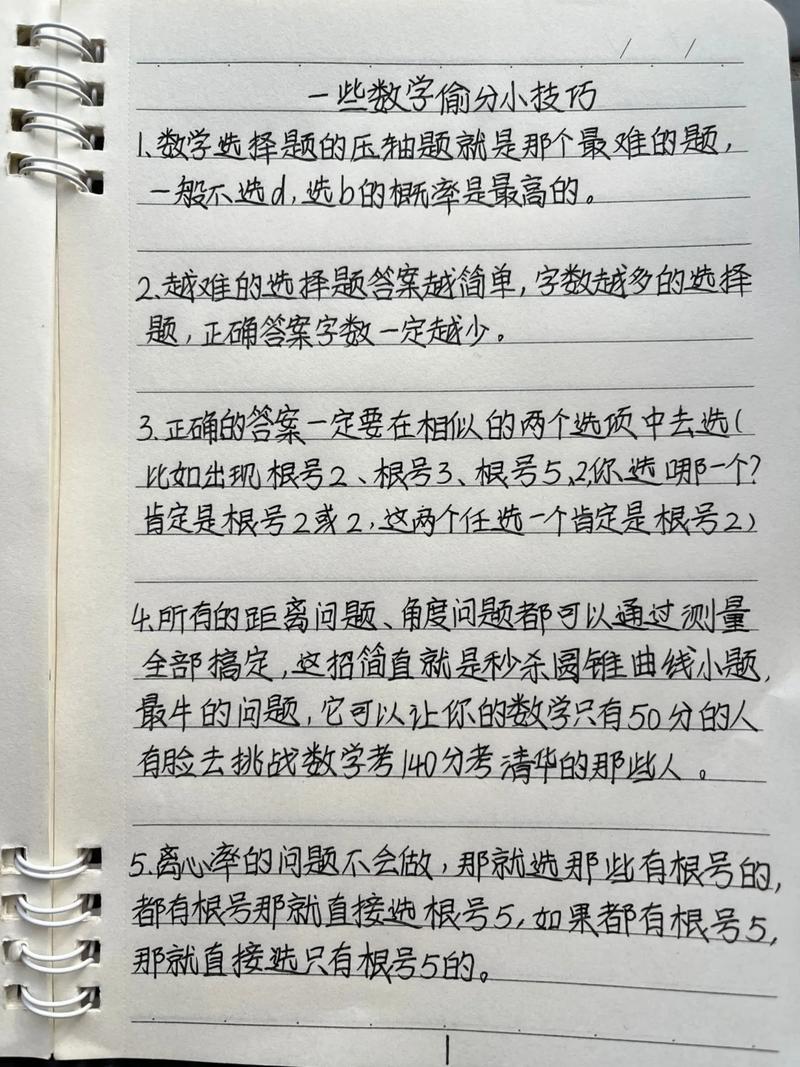 一些数学偷分小技巧
1、数学选择题的压轴题就是那个最难的题,
一般不选d,选b的概率是最高的。
2、越难的选择题答案越简单,字数越多的选择
题,正确答案字数一定越少。
3、正确的答案一定要在相似的两个选项中去选(
比如出现根号2、根号3、根号5、2,你选哪一个?
肯定是根号2或2,这两个任选一个肯定是根号2)
4、所有的距离问题、角度问题都可以通过测量
全部搞定,这招简直就是秒杀圆锥曲线小题,
最牛的问题,它可以让你的数学只有50分的人
有脸去挑战数学考140分考清华的那些人。
5、离心率的问题不会做,那就选那些有根号的,
都有根号那就直接选根号5,如果都有根号5,
那就直接选只有根号5的。